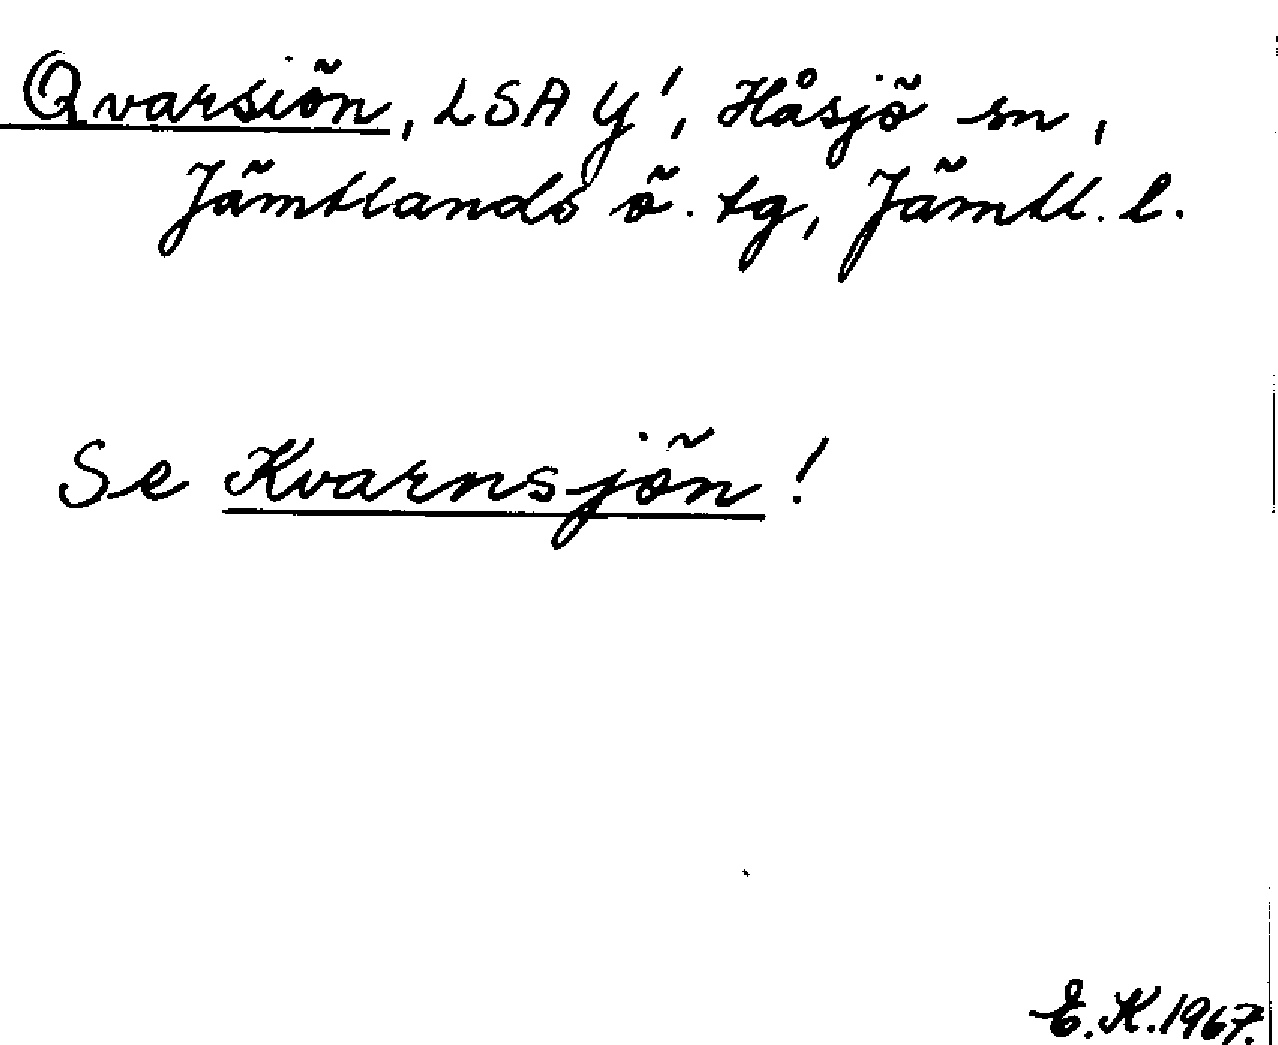 Qvarsiön, LSA Y', Håsjö sn,
Jämtlands ö. tg, Jämtl. l.
Se Kvarnsjön!
E.K.1967.